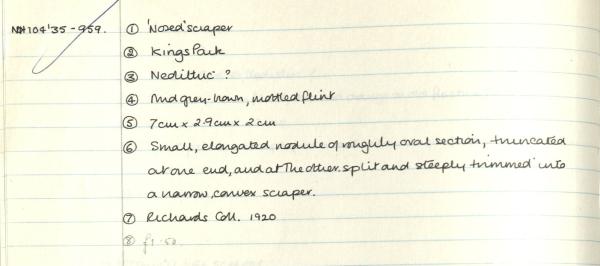 NH104'35-959. ① 'Nosed' scraper
② Kings Park
③ Neolithic ?
④ Mid grey-brown, mottled flint
⑤ 7cm x 2.9cm x 2cm
⑥ Small, elongated nodule of roughly oval section, truncated
at one end, and at the other split and steeply trimmed into
a narrow, convex scraper.
⑦ Richards Coll. 1920
⑧ £1.50